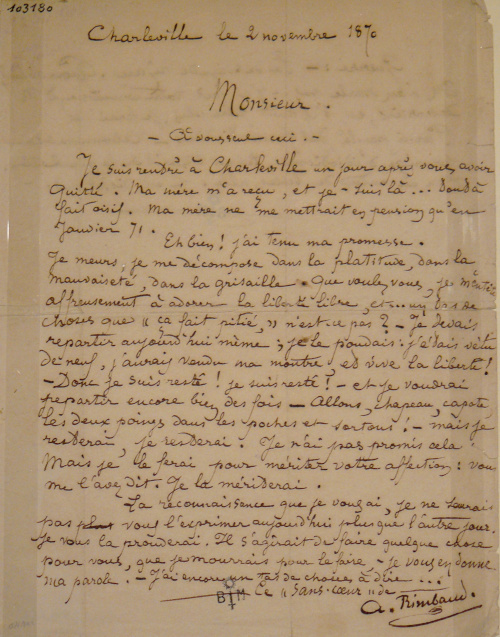 103180
Charleville le 2 novembre 1870
Monsieur.
— A vous seul ceci. —
Je suis rendré à Charleville un jour après vous avoir
quitté. Ma mère m'a reçu, et je - suis là... tout à
fait oisif. Ma mère ne me mettrait en pension qu'en
Janvier 71.
Eh bien! j'ai tenu ma promesse.
Je meurs, je me décompose dans la platitude, dans la
mauvaiseté, dans la grisaille. Que voulez vous, je m'entête
affreusement à adorer la liberté libre, et... un tas de
choses que "ça fait pitié," n'est-ce pas? - Je devais
repartir aujourd'hui même; je le pouvais: j'étais vêtu
de neuf, j'aurais vendu ma montre, et vive la liberté!
- Donc je suis resté! je suis resté! - et je voudrai
repartir encore bien des fois - Allons, chapeau, capote,
les deux poings dans les poches et sortons! - Mais je
resterai, je resterai. Je n'ai pas promis cela.
Mais je le ferai pour mériter votre affection: vous
me l'avez dit. Je la mériterai.
La reconnaissance que je vous ai, je ne saurais
pas vous l'exprimer aujourd'hui plus que l'autre jour.
Je vous la prouverai. Il s'agirait de faire quelque chose
pour vous, que je mourrais pour le faire, - je vous en donne
ma parole. - J'ai encore un tas de choses à dire...
Ce "sans-cœur" de
A. Rimbaud.
BM